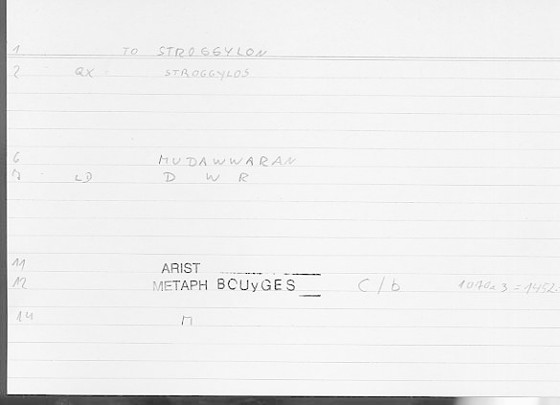 1 TO STROGGYLON
2 QX STROGGYLOS
6 MUDAWWARAN
7 LD D W R
11 ARIST
12 METAPH BOUyGES C/b
14 M